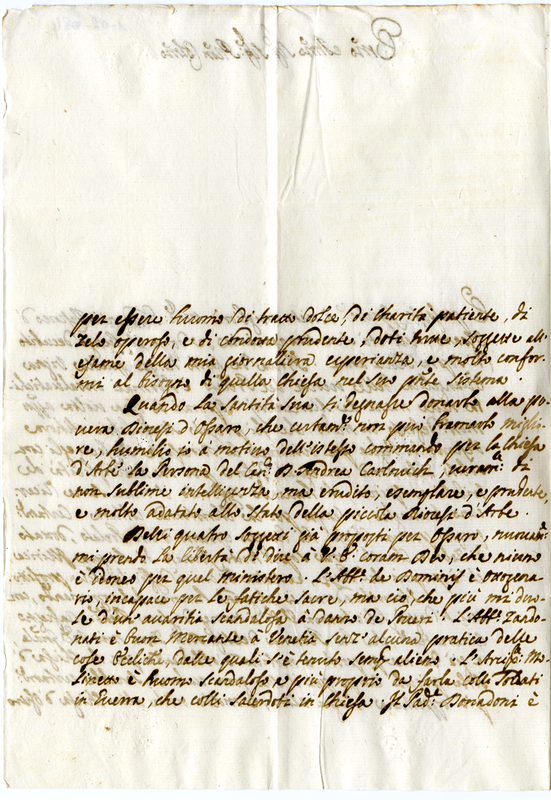 per essere huomo di tratto dolce, di charità patiente, di
zelo operoso, e di condotta prudente, doti tutte, soggette all'
esame della mia giornaliera esperienza, e molto confor-
mi al bisogno di quella Chiesa nel suo sistema.
Quando la Santità Sua si degnasse donarlo alla po-
vera Diocesi d'Ossaro, che certam.e non può bramarlo miglio-
re, humilio io a motivo dell'istesso commando per la Chiesa
d'Arbe la Persona del Can.co D. Andrea Carlovich, veram.e di
non sublime intelligenza, ma erudito, esemplare, e prudente
e molto adatato allo stato della piccola Diocesi d'Arbe.
Delli quatro soggetti già proposti per Ossaro, nuovam.e
mi prendo la libertà di dire à V. E. coram Deo, che niuno
è idoneo per quel ministero. L'Abb.e de Dominis è otogena-
rio, incapace per le fatiche sacre, ma ciò, che più mi duo-
le d'un avaritia scandalosa à danno de Poveri. L'Abb.e Zando-
nati è buon Mercante à Venetia senz'alcuna pratica delle
cose Ecc.liche, dalle quali s'è tenuto sempre alieno. L'Arcip.e Mo-
linetto è huomo scandaloso e più proprio da farla colli Soldati
in Guerra, che colli Sacerdoti in Chiesa. Il Pad.e Bornadoni è